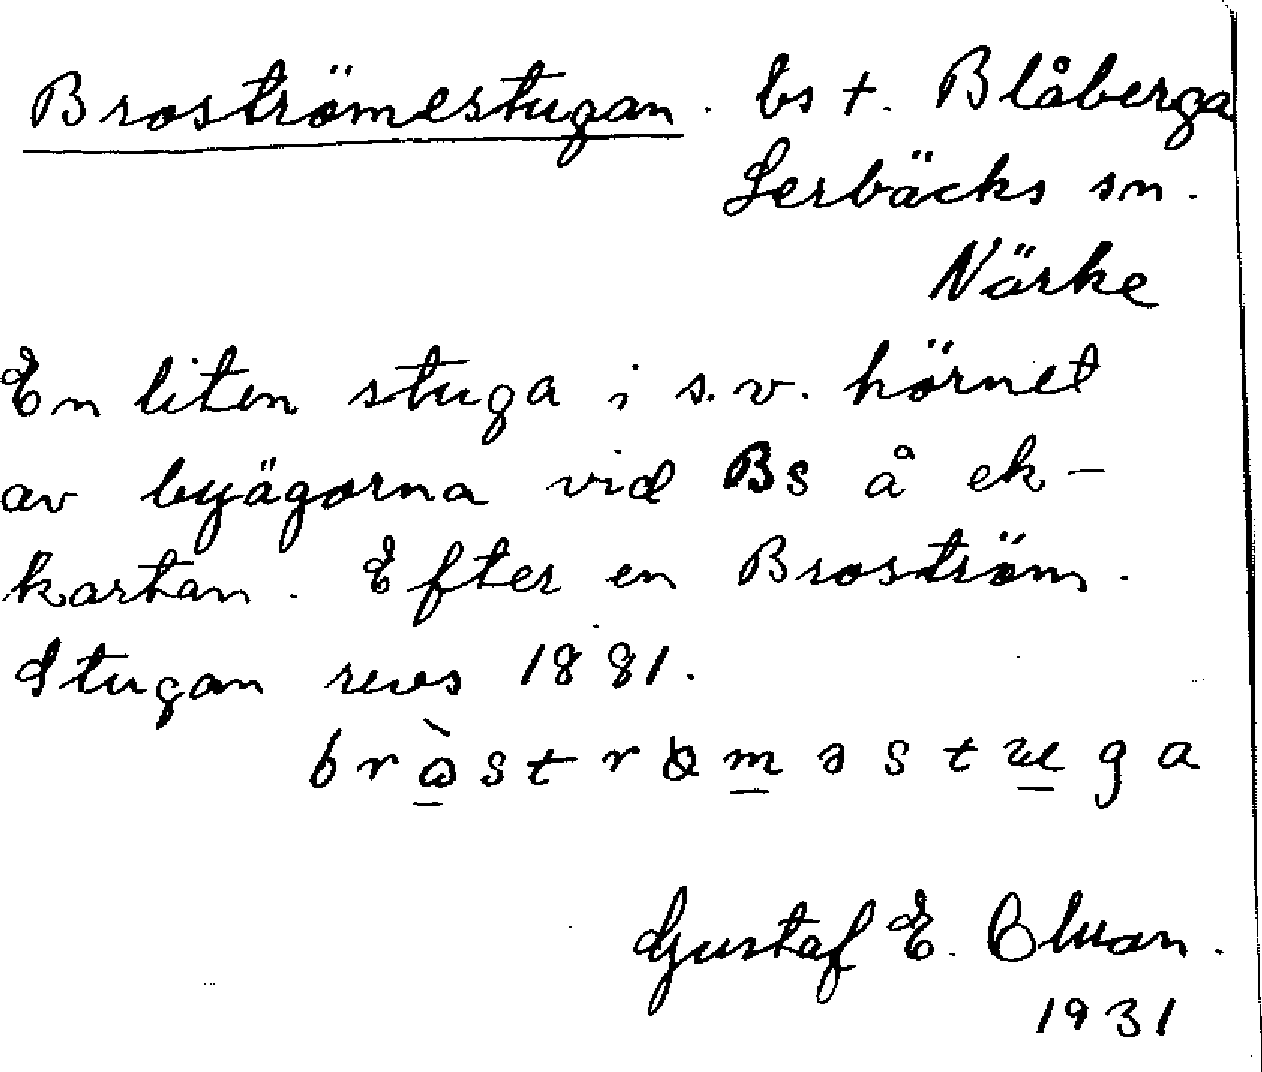 Broströmestugan. bs t. Blåberga
Lerbäcks sn.
Närke
En liten stuga i s.v. hörnet
av byägorna vid Bs å ek-
kartan. Efter en Broström.
Stugan revs 1881.
Gustaf E.
1931